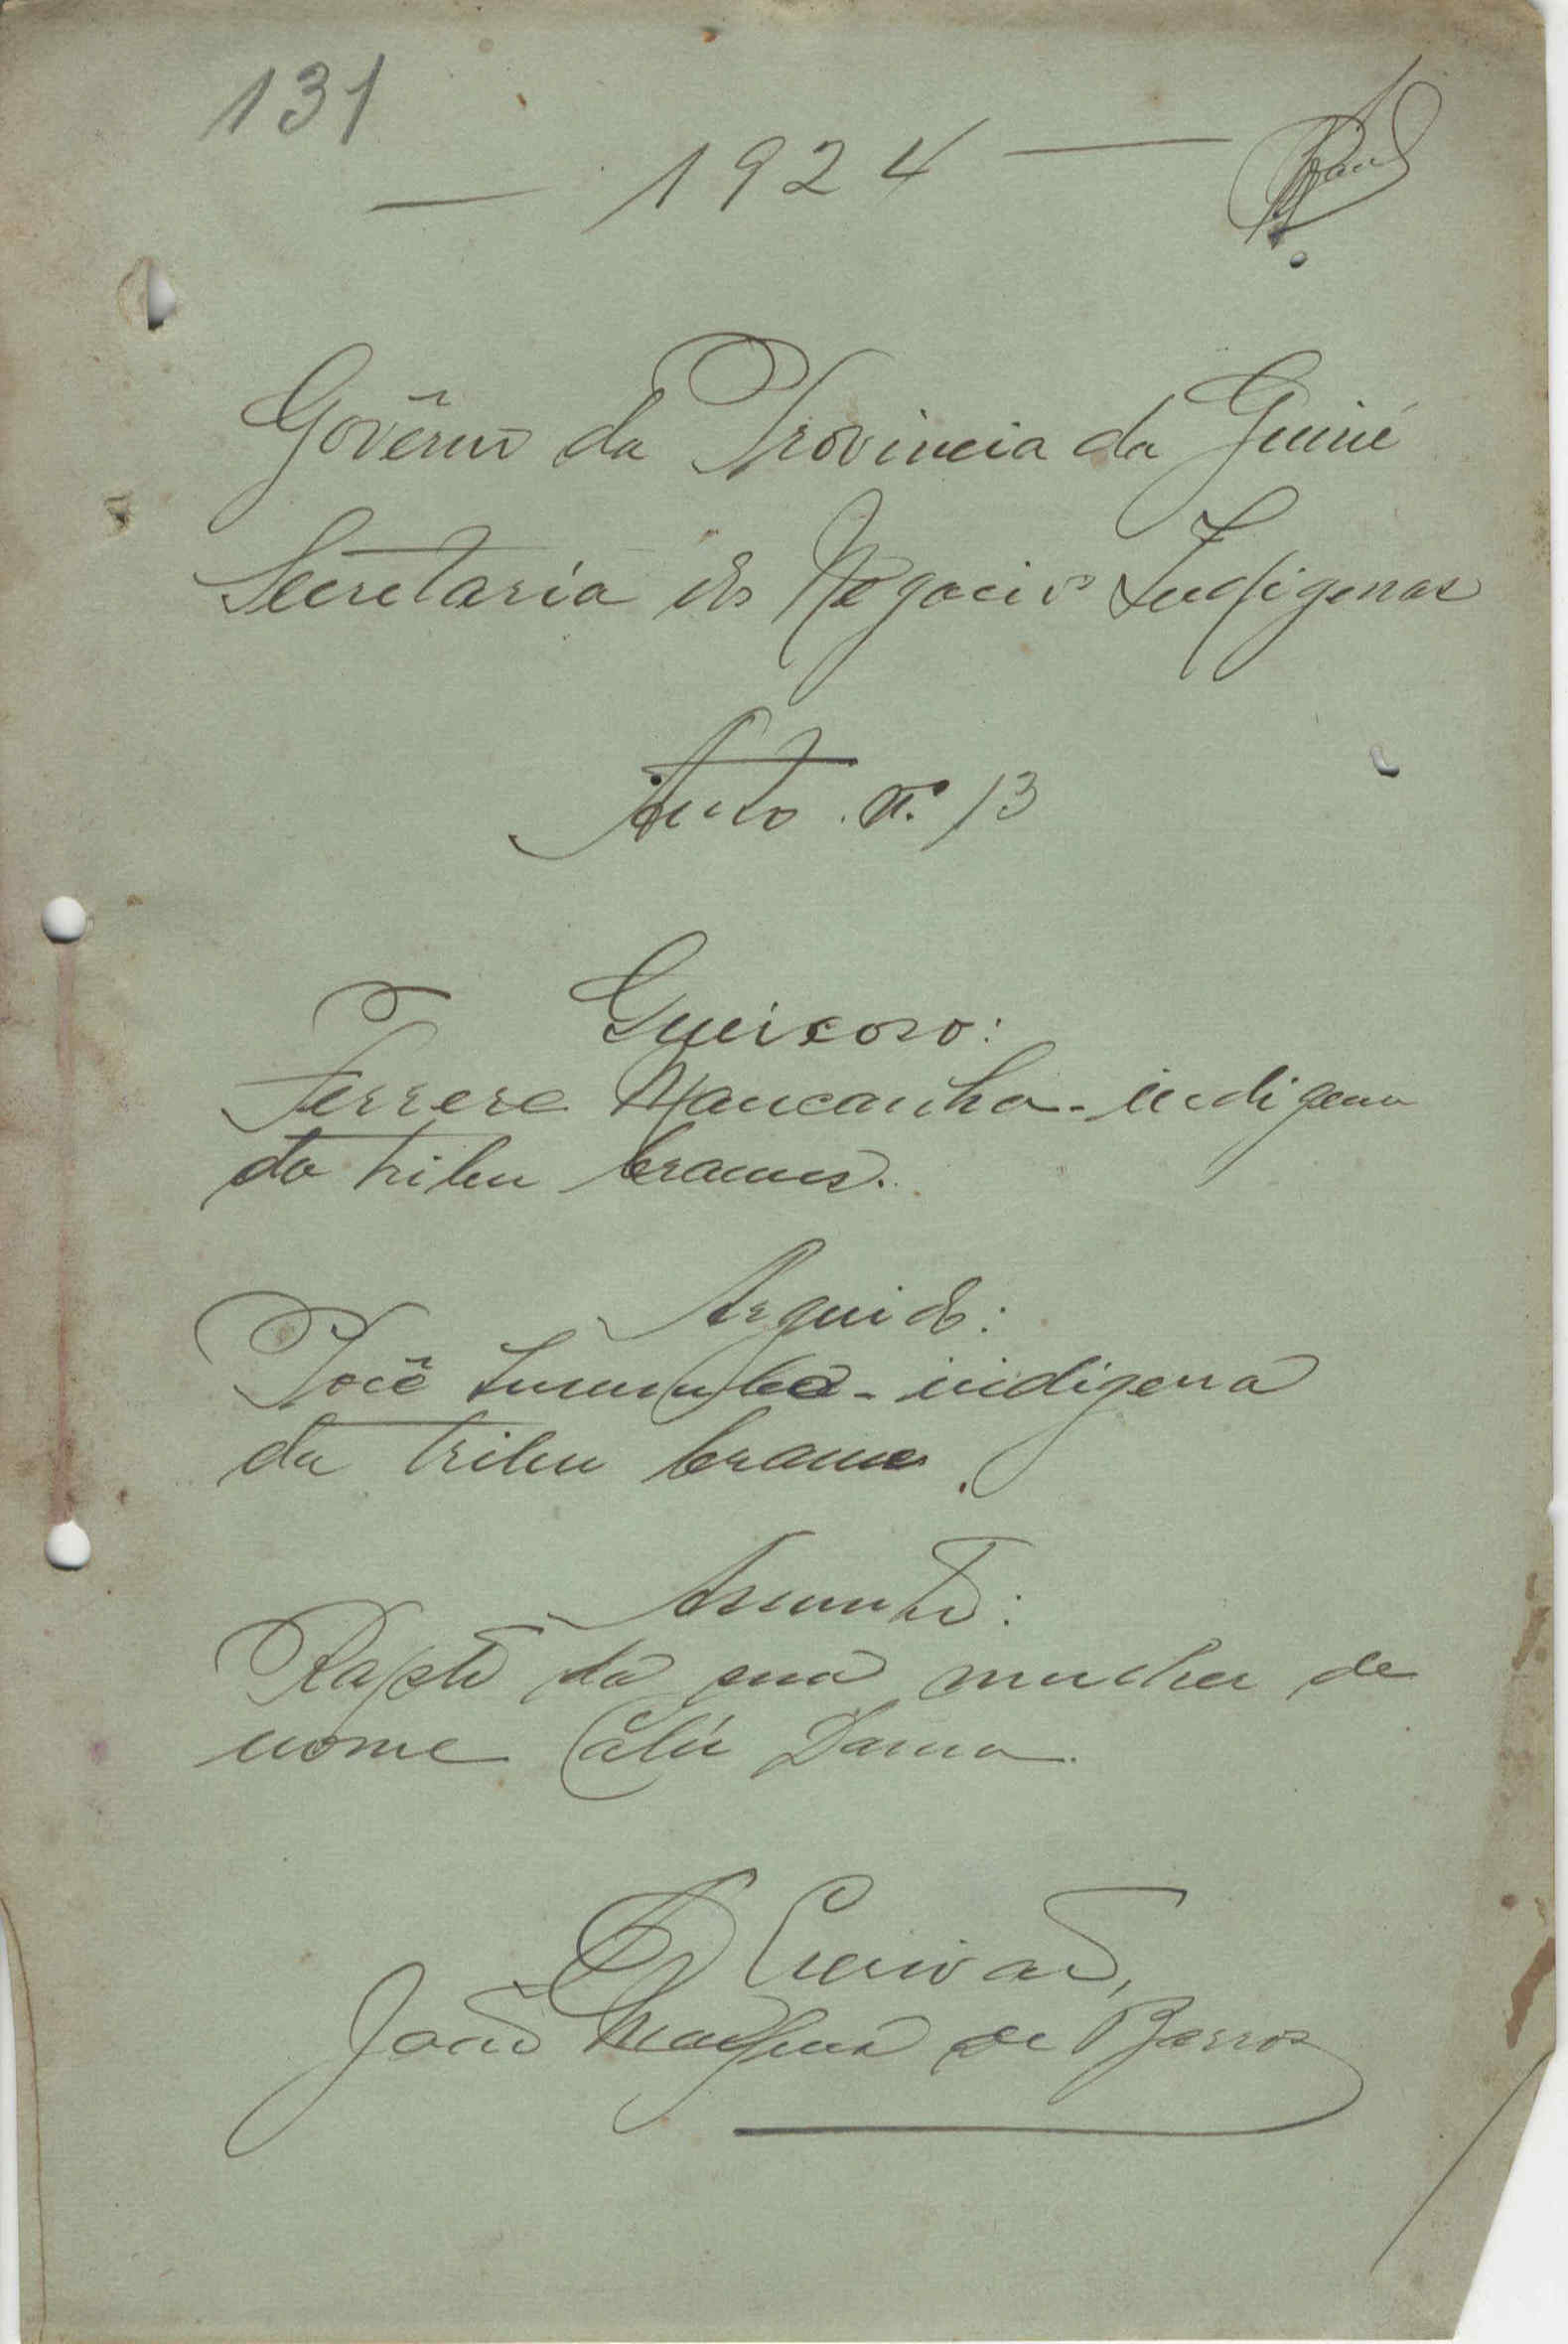 131
— 1924 —
Govêrno da Provincia da Guiné
Secretaria dos Negocios Indigenas
Auto n.º 13
Queixoso:
Ferrere Mancanha - indigena
da tribu brames.
Arguido:
José - indigena
da tribu brames.
Assunto:
Rapto da sua mulher de
nome Calú Dama.
O Escrivão,
João de Barros